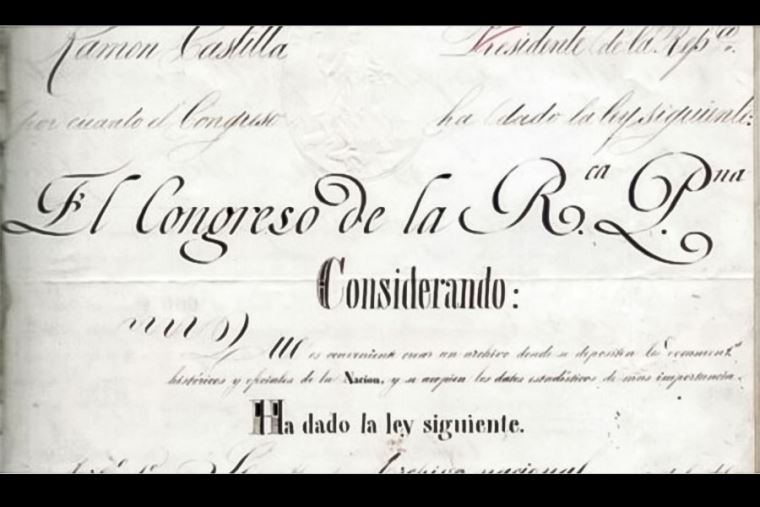 Ramon Castilla Presidente de la Repca.
por cuanto el Congreso ha dado la ley siguiente:
El Congreso de la R.ca P.na
Considerando:
es conveniente crear un archivo donde se depositen los document.s
históricos y oficiales de la Nacion, y se acopien los datos estadísticos de mas importancia.
Ha dado la ley siguiente.
Archivo nacional